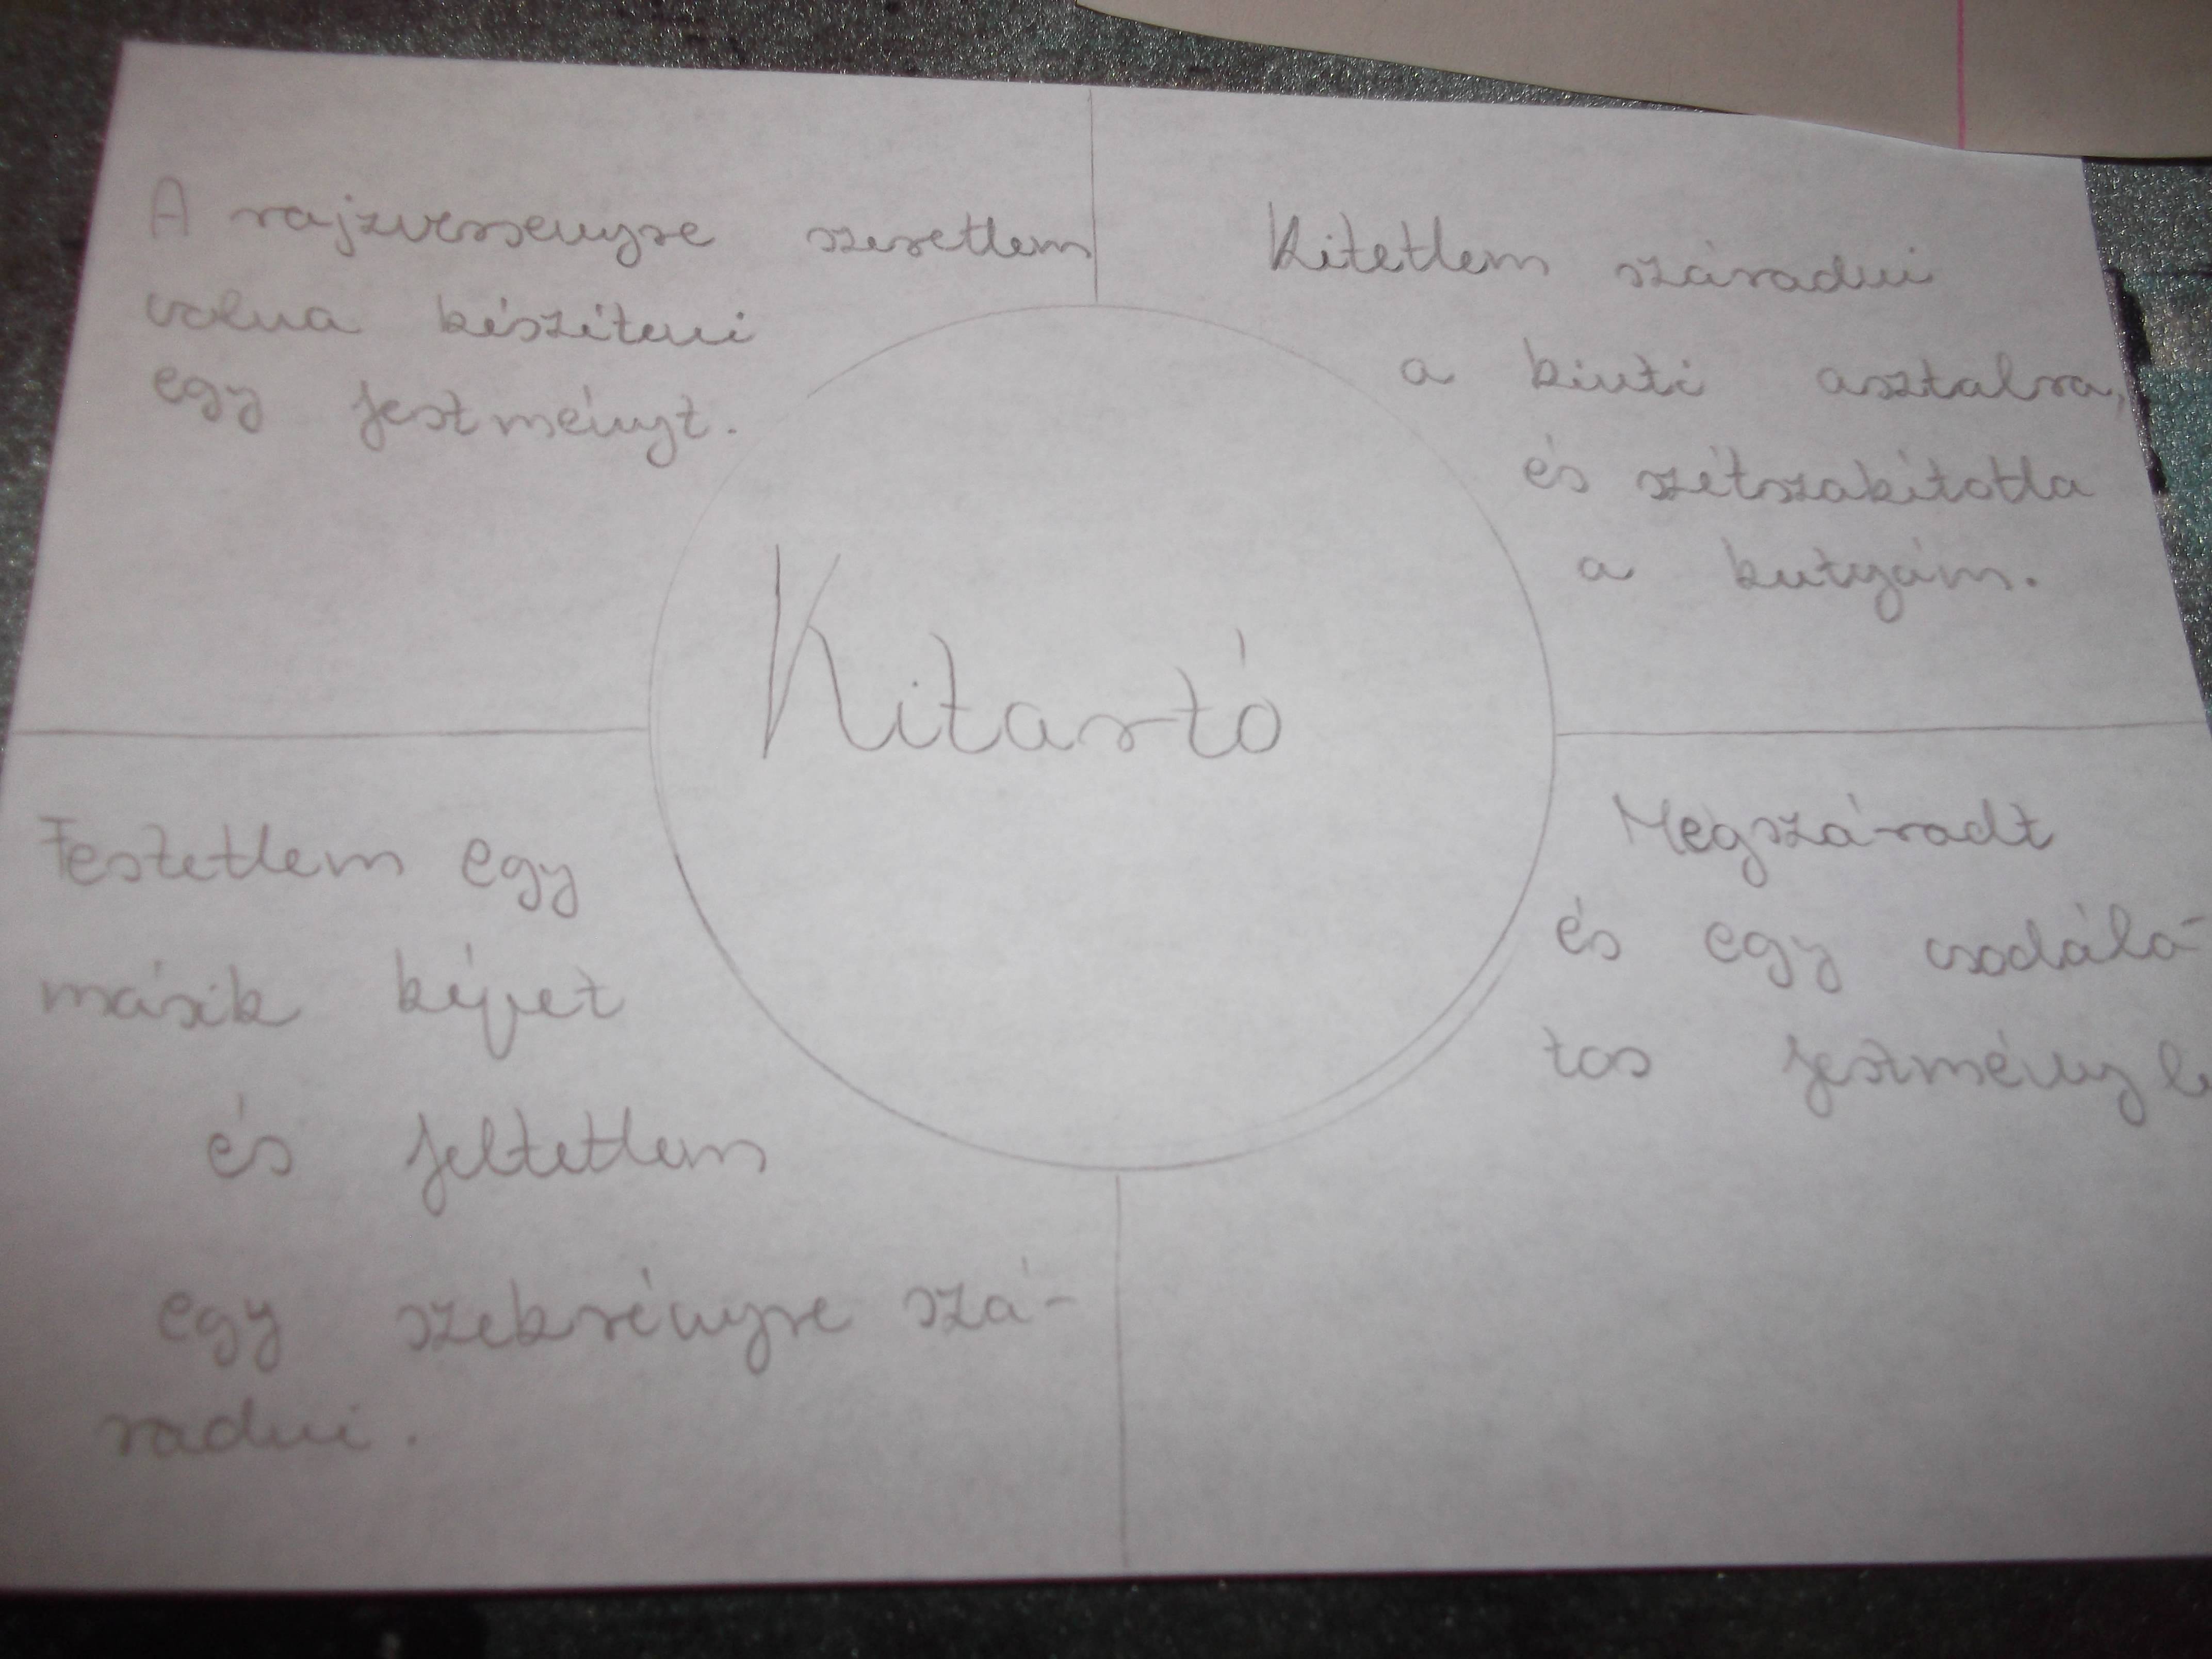 A rajzversenyre szerettem
volna készíteni
egy festményt.
Kitettem száradni
a kinti asztalra,
és szétszakította
a kutyám.
Kitartó
Festettem egy
másik képet
és feltettem
egy szekrényre szá-
radni.
Megszáradt
és egy csodála-
tos festmény l